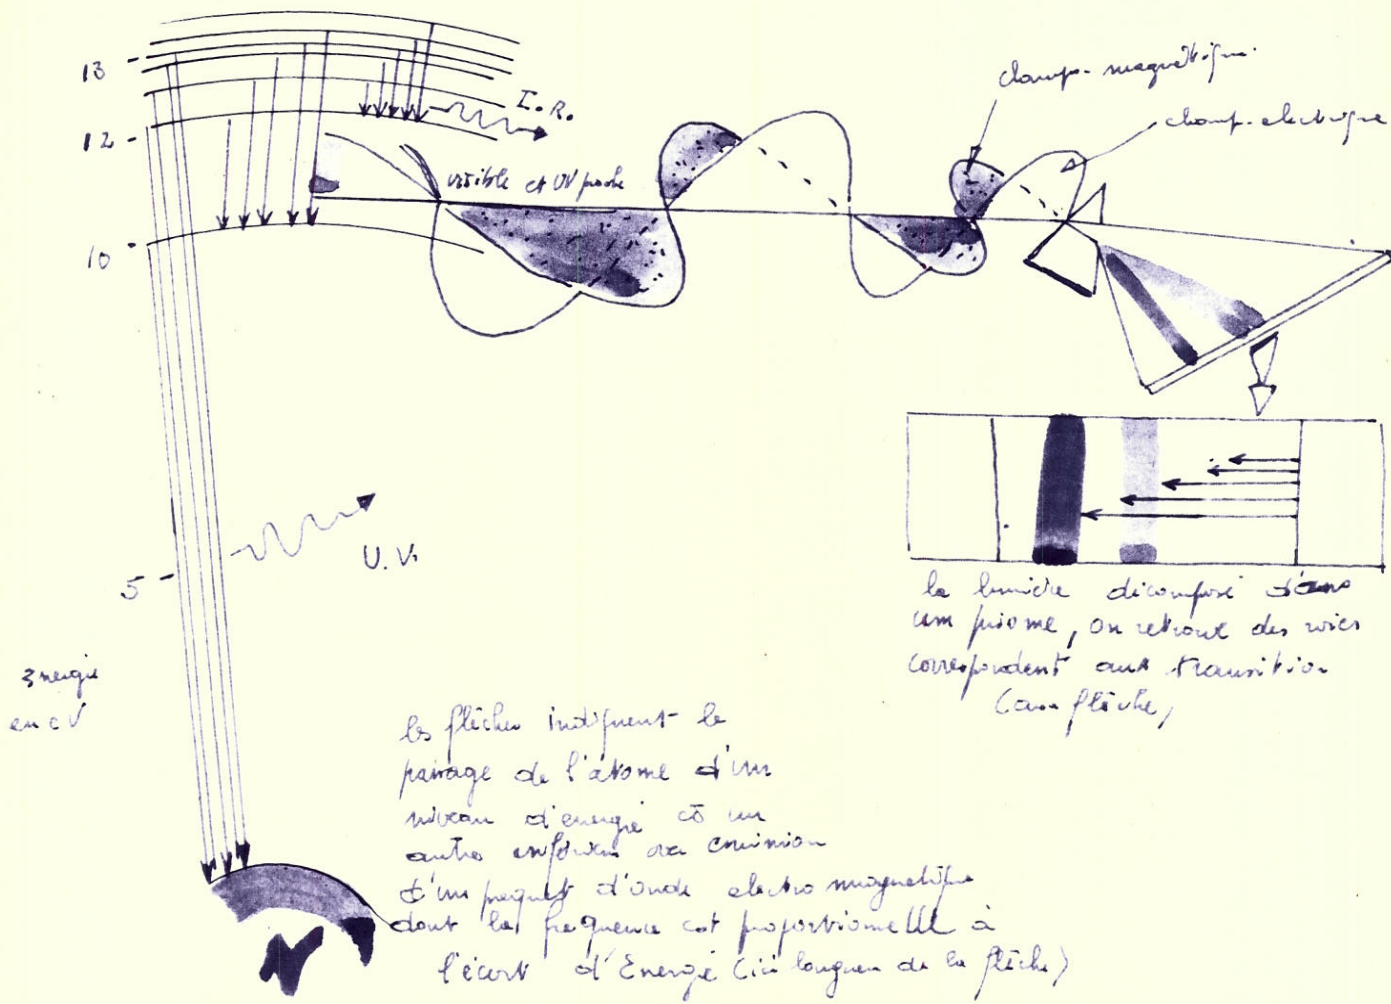 13
12
10
5
Energie
en eV
I.R.
visible et UV proche
champ-magnétique
champ-electrique
U.V.
la lumière décomposé dans
um prisme, on retrouve des raies
correspondent aux transition
les flèches indiquent le
passage de l'atome d'un
niveau d'energie à un
autre emission
d'un paquet d'onde electro magnetique
dont la frequence est proportionnelle à
l'écart d'Energie (ici longueur de la flèche)